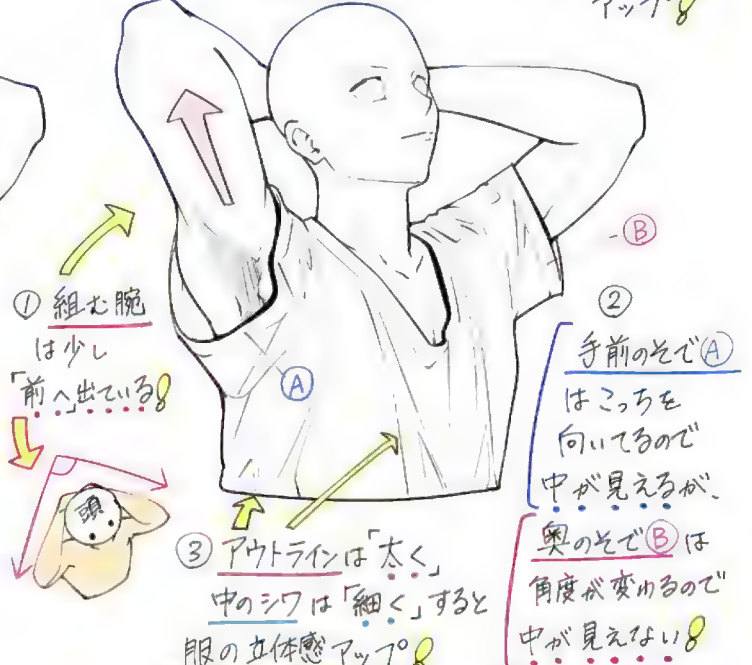 アップ!
Ⓑ
① 組む腕
は少し
「前へ」出ている!
頭
Ⓐ
②
手前のそでⒶ
はこっちを
向いてるので
中が見えるが、
奥のそでⒷは
角度が変わるので
中が見えない!
③ アウトラインは「太く」
中のシワは「細く」すると
服の立体感アップ!